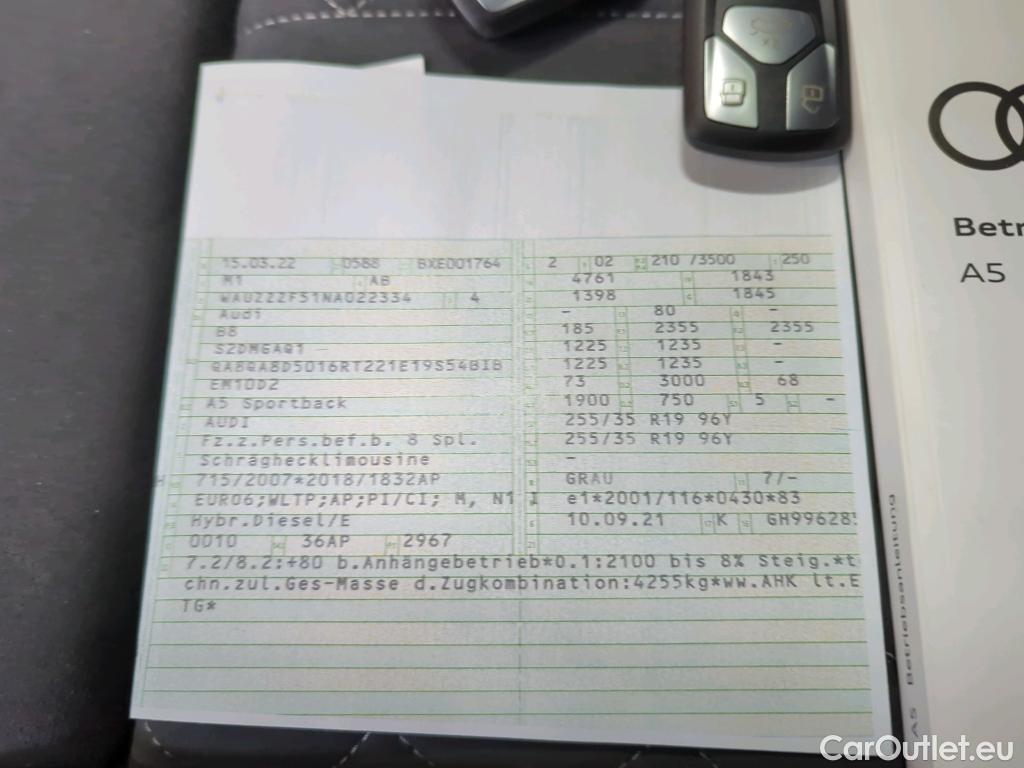 15.03.22 0588 BXE001764 2 02 210 /3500 250
M1 AB 4761 1843
WAUZZZF51NA022334 4 1398 1845
Audi - 80 -
B8 185 2355 2355
S2DM6AQ1 1225 1235 -
QA8QA8D5016RT221E19S54BIB 1225 1235 -
EM10D2 73 3000 68
A5 Sportback 1900 750 5 -
AUDI 255/35 R19 96Y
Fz.z.Pers.bef.b. 8 Spl. 255/35 R19 96Y
Schräghecklimousine -
715/2007*2018/1832AP GRAU 7/-
EURO6;WLTP;AP;PI/CI; M, N1 I e1*2001/116*0430*83
Hybr.Diesel/E 10.09.21 K GH99628
0010 36AP 2967
7.2/8.2:+80 b.Anhängebetrieb*0.1:2100 bis 8% Steig.*t
chn.zul.Ges-Masse d.Zugkombination:4255kg*ww.AHK lt.E
TG*
Betr
A5
A5 Betriebsanleitung
CarOutlet.eu